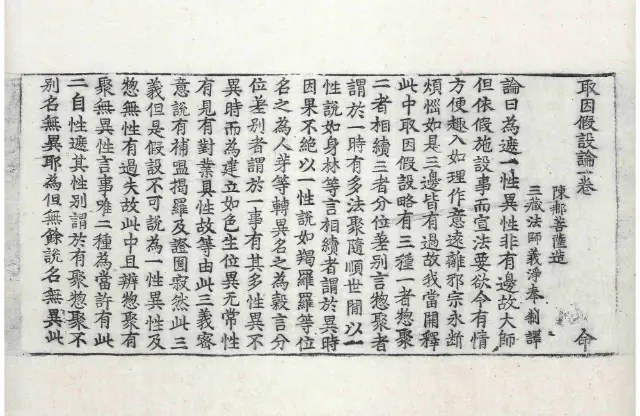 取因假設論一卷 命
陳那菩薩造
三藏法師義淨奉 制譯
論曰為遮一性異性非有邊故大師
但依假施設事而宣法要欲令有情
方便趣入如理作意遠離邪宗永斷
煩惱如是三邊皆有過故我當開釋
此中取因假設略有三種一者惣聚
二者相續三者分位差別言惣聚者
謂於一時有多法聚隨順世間以一
性說如身林等言相續者謂於異時
因果不絕以一性說如羯羅羅等位
名之為人芽等轉異名之為穀言分
位差別者謂於一事有其多性異不
異時而為建立如色生位異无常性
有見有對業具性故等由此三義密
意說有補盟揭羅及證圓寂然此三
義但是假設不可說為一性異性及
惣無性有過失故此中且辨惣聚有
聚無異性言事唯二種為當許有此
二自性遮其性別謂於有聚惣聚不
別名無異耶為但無餘說名無異此